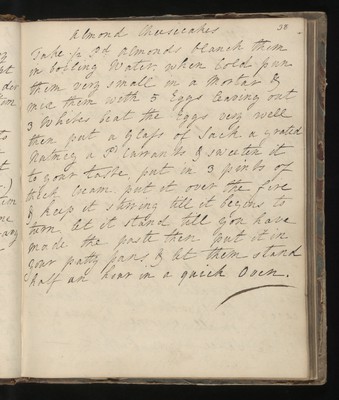 Almond Cheesecakes
38
Take ½ Pd Almonds blanch them
in boiling Water, when Cold pun
them very small in a Mortar &
mix them with 5 Eggs leaving out
3 Whites beat the Eggs very well
then put a Glass of Sack a grated
Nutmeg a Pd Currants & sweeten it
to your taste, put in 3 pints of
thick Cream put it over the fire
& keep it stirring till it begins to
turn let it stand till you have
made the paste then put it in
your patty pans & let them stand
half an hour in a quick Oven.